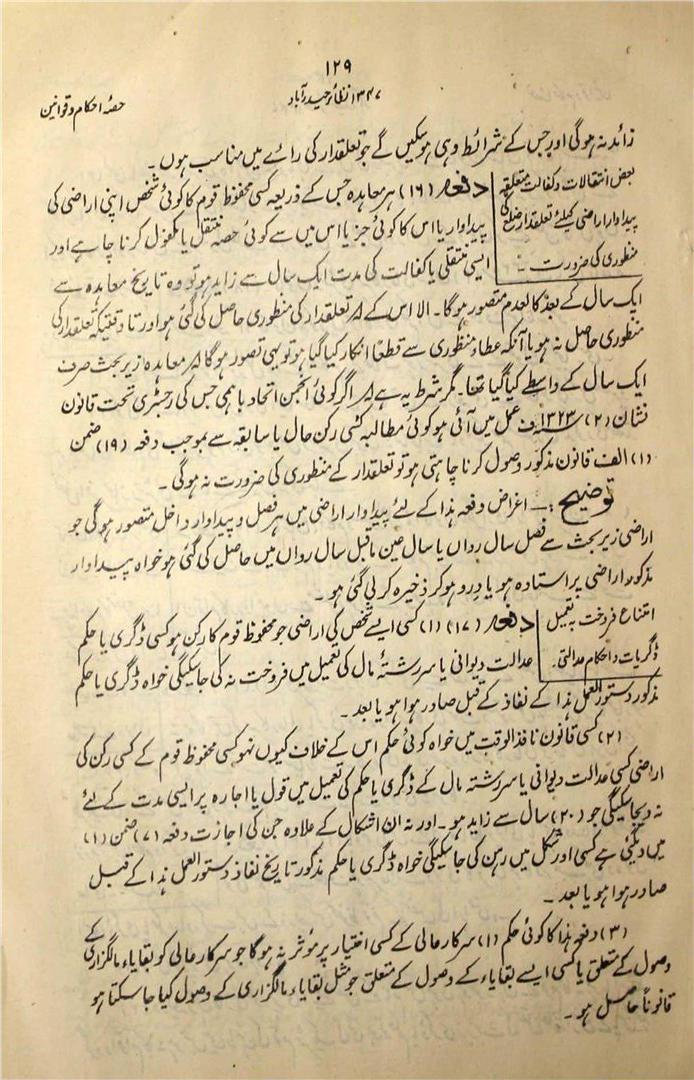 ۱۲۹
۱۳۴۷ نظائر حیدرآباد
حصہ احکام و قوانین
زائد نہ ہوگی اور جس کے شرائط وہی ہوسکیں گے جو تعلقدار کی رائے میں مناسب ہوں۔
بعض انتقالات و کفالت متعلقہ
پیداوار اراضی کیلئے تعلقدار ضلع کی
منظوری کی ضرورت ۔
دفعہ (۱۶) ہر معاہدہ جس کے ذریعہ کسی محفوظ قوم کا کوئی شخص اپنی اراضی کی
پیداوار یا اس کا کوئی جز یا اس میں سے کوئی حصہ منتقل یا مکفول کرنا چاہے اور
ایسی منتقلی یا کفالت کی مدت ایک سال سے زاید ہو تو وہ تاریخ معاہدہ سے
ایک سال کے بعد کالعدم متصور ہوگا۔ الا اس کے لہ تعلقدار کی منظوری حاصل کی گئی ہو اور تا وقتیکہ تعلقدار کی
منظوری حاصل نہ ہو یا آنکہ عطاء منظوری سے قطعاً انکار کیا گیا ہو تو یہی تصور ہوگا لہ معاہدہ زیر بحث صرف
ایک سال کے واسطے کیا گیا تھا۔ مگر شرط یہ ہے لہ اگر کوئی انجمن اتحاد باہمی جس کی رجسٹری تحت قانون
نشان (۲) ۱۳۲۳ف عمل میں آئی ہو کوئی مطالبہ کسی رکن حال یا سابقہ سے بموجب دفعہ (۱۹) ضمن
(۱) الف قانون مذکور وصول کرنا چاہتی ہو تو تعلقدار کے منظوری کی ضرورت نہ ہوگی۔
توضیح :۔ اغراض دفعہ ہذا کے لئے پیداوار اراضی میں ہر فصل و پیداوار داخل متصور ہوگی جو
اراضی زیر بحث سے فصل سال رواں یا سال عین ماقبل سال رواں میں حاصل کی گئی ہو خواہ پیداوار
مذکور اراضی پر استادہ ہو یا درو ہو کر ذخیرہ کر لی گئی ہو۔
امتناع فروخت بہ تعمیل
ڈگریات و احکام عدالتی۔
دفعہ (۱۷) (۱) کسی ایسے شخص کی اراضی جو محفوظ قوم کا رکن ہو کسی ڈگری یا حکم
عدالت دیوانی یا سررشتۂ مال کی تعمیل میں فروخت نہ کی جاسکیگی خواہ ڈگری یا حکم
مذکور دستور العمل ہذا کے نفاذ کے قبل صادر ہوا ہو یا بعد۔
(۲) کسی قانون نافذ الوقت میں خواہ کوئی حکم اس کے خلاف کیوں نہو کسی محفوظ قوم کے کسی رکن کی
اراضی کسی عدالت دیوانی یا سررشتہ مال کے ڈگری یا حکم کی تعمیل میں قول یا اجارہ پر ایسی مدت کے لئے
نہ دیجاسکیگی جو (۲۰) سال سے زاید ہو۔ اور نہ ان اشکال کے علاوہ جن کی اجازت دفعہ (۷) ضمن (۱)
میں دیگئی ہے کسی اور شکل میں رہن کی جاسکیگی خواہ ڈگری یا حکم مذکور تاریخ نفاذ دستور العمل ہذا کے قبل
صادر ہوا ہو یا بعد ۔
(۳) دفعہ ہذا کا کوئی حکم (۱) سرکار عالی کے کسی اختیار پر مؤثر نہ ہوگا جو سرکار عالی کو بقایاء مالگزاری کے
وصول کے متعلق یا کسی ایسے بقایاء کے وصول کے متعلق جو مثل بقایاء مالگزاری کے وصول کیا جاسکتا ہو
قانوناً حاصل ہو ۔